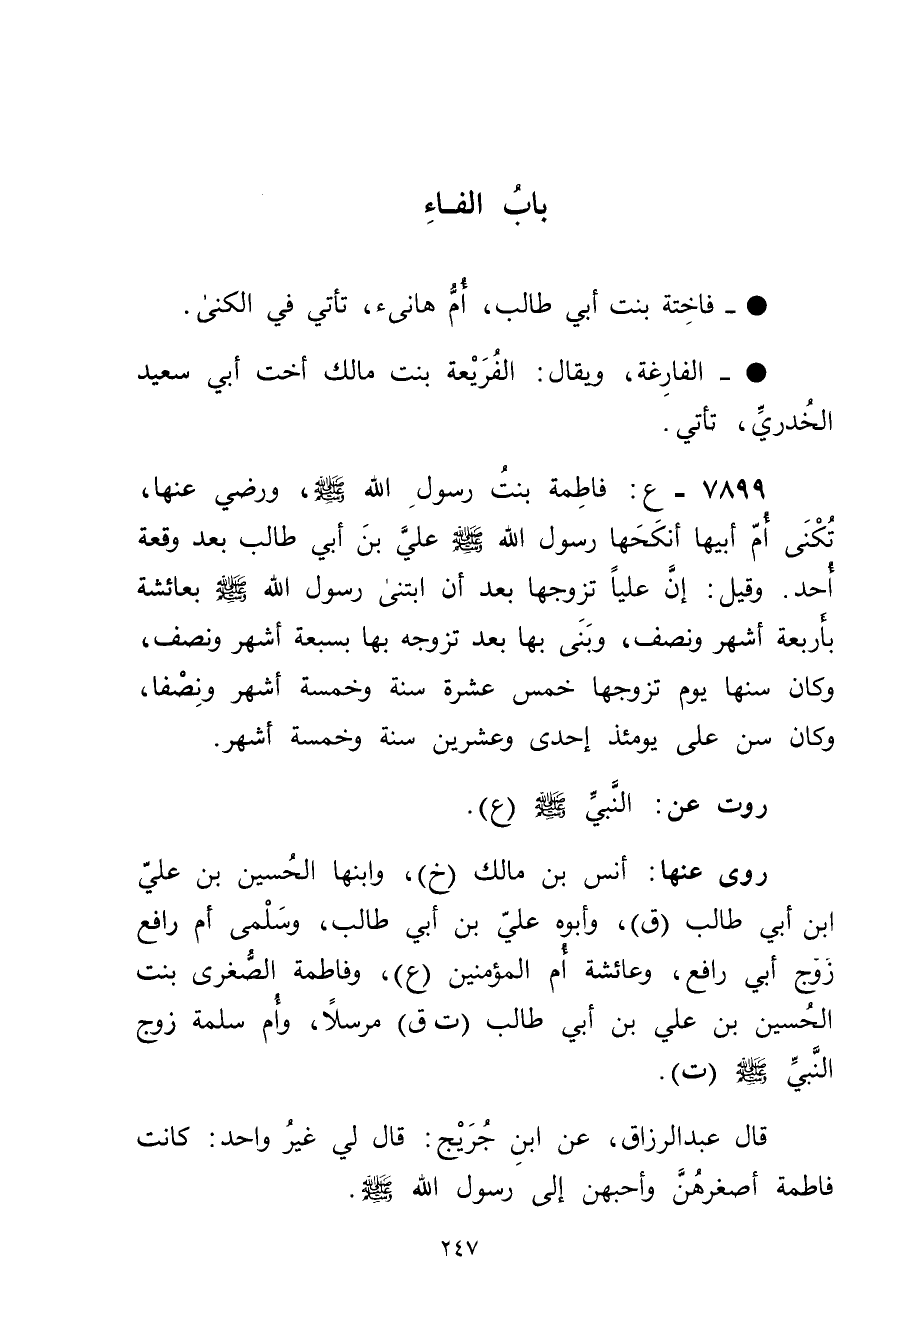 بابُ الفـاءِ
● ـ فاخِتة بنت أبي طالب، أُمُّ هانىء، تأتي في الكنىٰ.
● ـ الفارِغة، ويقال: الفُرَيْعة بنت مالك أخت أبي سعيد
الخُدريِّ، تأتي.
٧٨٩٩ ـ ع: فاطِمة بنتُ رسولِ الله ﷺ، ورضي عنها،
تُكْنَى أُمّ أبيها أنكَحَها رسول الله ﷺ عليَّ بنَ أبي طالب بعد وقعة
أُحد. وقيل: إنَّ علياً تزوجها بعد أن ابتنىٰ رسول الله ﷺ بعائشة
بأَربعة أشهر ونصف، وبَنَى بها بعد تزوجه بها بسبعة أشهر ونصف،
وكان سنها يوم تزوجها خمس عشرة سنة وخمسة أشهر ونِصْفا،
وكان سن على يومئذ إحدى وعشرين سنة وخمسة أشهر.
روت عن: النَّبيِّ ﷺ (ع).
روى عنها: أنس بن مالك (خ)، وابنها الحُسين بن عليّ
ابن أبي طالب (ق)، وأبوه عليّ بن أبي طالب، وسَلْمى أم رافع
زَوَج أبي رافع، وعائشة أُم المؤمنين (ع)، وفاطمة الصُّغرى بنت
الحُسين بن علي بن أبي طالب (ت ق) مرسلًا، وأُم سلمة زوج
النَّبيِّ ﷺ (ت).
قال عبدالرزاق، عن ابنِ جُرَيْج: قال لي غيرُ واحد: كانت
فاطمة أصغرهُنَّ وأحبهن إلى رسول الله ﷺ.
٢٤٧